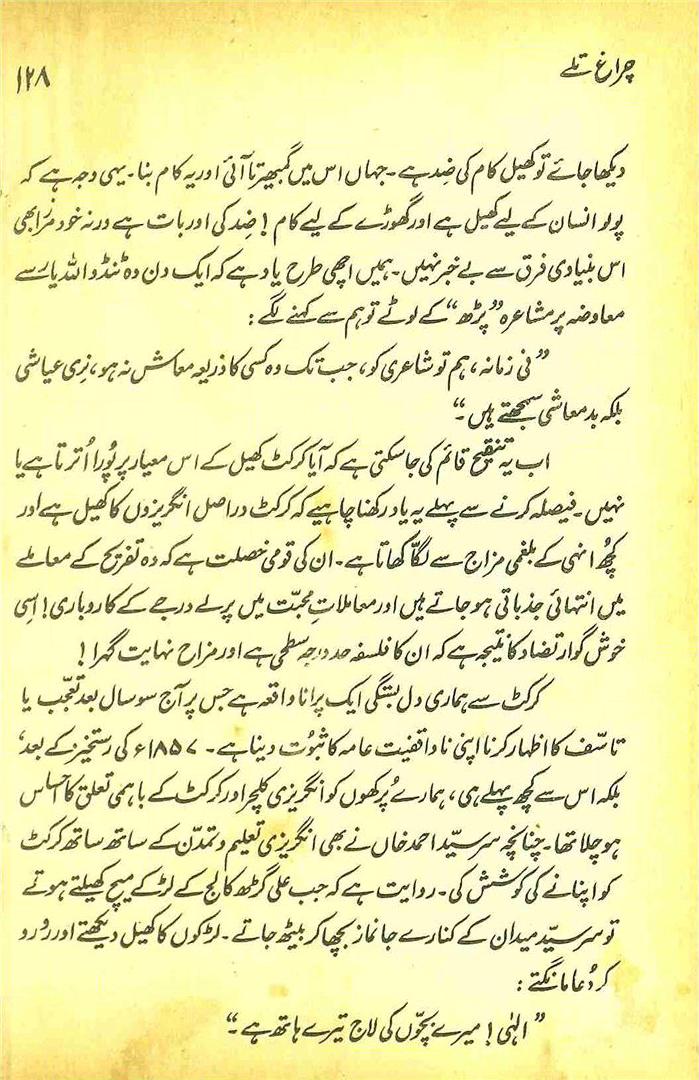 چراغ تلے
۱۲۸
دیکھا جائے تو کھیل کام کی ضِد ہے۔ جہاں اس میں گمبھیرتا آئی اور یہ کام بنا۔ یہی وجہ ہے کہ
پولو انسان کے لیے کھیل ہے اور گھوڑے کے لیے کام! ضِد کی اور بات ہے ورنہ خود مرزا بھی
اس بنیادی فرق سے بے خبر نہیں۔ ہمیں اچھی طرح یاد ہے کہ ایک دن وہ ٹنڈو اللہ یار سے
معاوضہ پر مشاعرہ ”پڑھ“ کے لوٹے تو ہم سے کہنے لگے:
”فی زمانہ، ہم تو شاعری کو، جب تک وہ کسی کا ذریعہ معاش نہ ہو، نِری عیاشی
بلکہ بدمعاشی سمجھتے ہیں۔“
اب یہ تنقیح قائم کی جاسکتی ہے کہ آیا کرکٹ کھیل کے اس معیار پر پُورا اُترتا ہے یا
نہیں۔ فیصلہ کرنے سے پہلے یہ یاد رکھنا چاہیے کہ کرکٹ دراصل انگریزوں کا کھیل ہے اور
کچھ انہی کے بلغمی مزاج سے لگّا کھاتا ہے۔ ان کی قومی خصلت ہے کہ وہ تفریح کے معاملے
میں انتہائی جذباتی ہو جاتے ہیں اور معاملاتِ محبّت میں پرلے درجے کے کاروباری! اسی
خوش گوار تضاد کا نتیجہ ہے کہ ان کا فلسفہ حد درجہ سطحی ہے اور مزاح نہایت گہرا!
کرکٹ سے ہماری دل بستگی ایک پرانا واقعہ ہے جس پر آج سو سال بعد تعجّب یا
تاسّف کا اظہار کرنا اپنی ناواقفیت عامہ کا ثبوت دینا ہے۔ ۱۸۵۷ء کی رستخیز کے بعد،
بلکہ اس سے کچھ پہلے ہی، ہمارے پُرکھوں کو انگریزی کلچر اور کرکٹ کے باہمی تعلق کا احساس
ہو چلا تھا۔ چنانچہ سر سیّد احمد خاں نے بھی انگریزی تعلیم و تمدّن کے ساتھ ساتھ کرکٹ
کو اپنانے کی کوشش کی۔ روایت ہے کہ جب علی گڑھ کالج کے لڑکے میچ کھیلتے ہوتے
تو سر سیّد میدان کے کنارے جا نماز بچھا کر بیٹھ جاتے۔ لڑکوں کا کھیل دیکھتے اور رو رو
کر دُعا مانگتے:
”الٰہی! میرے بچّوں کی لاج تیرے ہاتھ ہے۔“